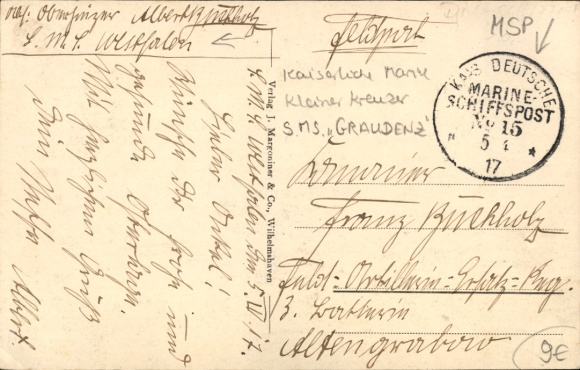 Abs: Oberheizer Albert Buckholz
S.M.S. Westfalen
Feldpost
MSP
Kaiserliche Marine
Kleiner Kreuzer
S.M.S. „GRAUDENZ"
KAIS. DEUTSCHE
MARINE-
SCHIFFSPOST
No 15
5 4
17
S.M.S. Westfalen den 5.IV.17.
Lieber Onkel!
Wünsche Dir frohe und
gesunde Ostern.
Mit herzlichem Gruß
Dein Neffe Albert.
Verlag J. Margoniner & Co., Wilhelmshaven
Kanonier
Franz Buckholz
Feld-Artillerie-Ersatz-Reg.
3. Batterie
Altengrabow
9€